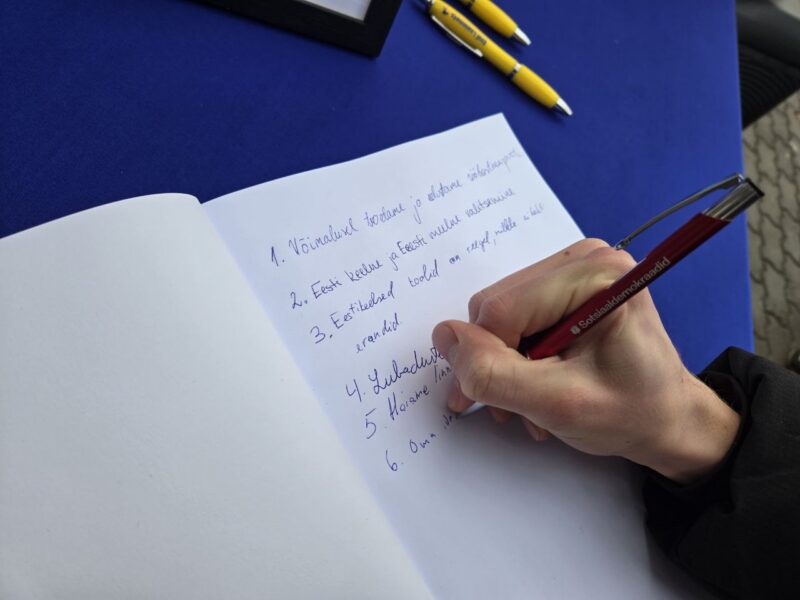 1. Võimalusel toodame ja
2. Eesti keelne ja Eesti meelne valitsemine
3. Eestikeelsed toolid on reegel, millele on
erandid.
4. Lubaduste
5. Hoiame linn
6. Oma
Sotsiaaldemokraadid